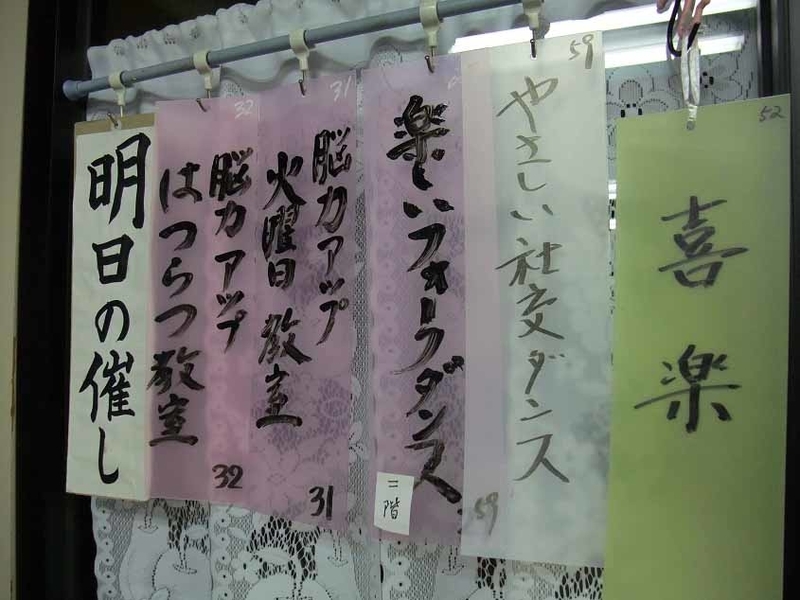 明日の催し
32
脳力アップ
はつらつ教室
32
31
脳力アップ
火曜日教室
31
楽しいフォークダンス
二階
59
やさしい社交ダンス
59
52
喜楽